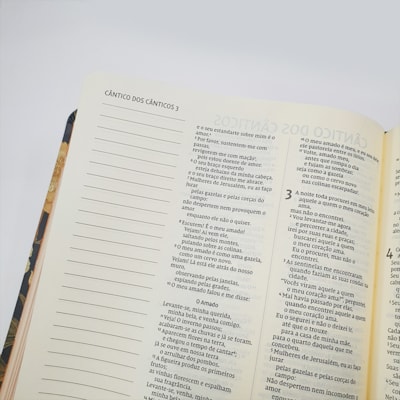 CÂNTICO DOS CÂNTICOS 3
e o seu estandarte sobre mim é o
amor.
5 Por favor, sustentem-me com
passas,
revigorem-me com maçãs,
pois estou doente de amor.
6 O seu braço esquerdo
esteja debaixo da minha cabeça,
e o seu braço direito me abrace.
7 Mulheres de Jerusalém, eu as faço
jurar
pelas gazelas e pelas corças do
campo:
não despertem nem provoquem o
amor
enquanto ele não o quiser.
8 Escutem! É o meu amado!
Vejam! Aí vem ele,
saltando pelos montes,
pulando sobre as colinas.
9 O meu amado é como uma gazela,
como um cervo novo.
Vejam! Lá está ele atrás do nosso
muro,
observando pelas janelas,
espiando pelas grades.
10 O meu amado falou e me disse:
O Amado
Levante-se, minha querida,
minha bela, e venha comigo.
11 Veja! O inverno passou;
acabaram-se as chuvas e já se foram.
12 Aparecem flores na terra,
e chegou o tempo de cantar;
já se ouve em nossa terra
o arrulhar dos pombos.
13 A figueira produz os primeiros
frutos;
as vinhas florescem e espalham
sua fragrância.
Levante-se, minha querida,
minha bela,
O meu amado é meu, e eu sou
ele pastoreia entre os lírios.
17 Volte, amado meu,
antes que rompa o dia
e fujam as sombras;
seja como a gazela
ou como o cervo novo
nas colinas escarpadas.
3 A noite toda procurei em meu
aquele a quem o meu coração
ama,
mas não o encontrei.
2 Vou levantar-me agora
e percorrer a cidade,
irei por suas ruas e praças;
buscarei aquele a quem
o meu coração ama.
Eu o procurei, mas não o
encontrei.
3 As sentinelas me encontraram
quando faziam as suas rondas
na cidade.
"Vocês viram aquele a quem
o meu coração ama?", perguntei.
4 Mal havia passado por elas,
quando encontrei aquele a quem
o meu coração ama.
Eu o segurei e não o deixei ir,
até que o trouxe
para a casa de minha mãe,
para o quarto daquela que me
concebeu.
5 Mulheres de Jerusalém, eu as faço
jurar
pelas gazelas e pelas corças do
campo:
Não despertem nem incomodem
4